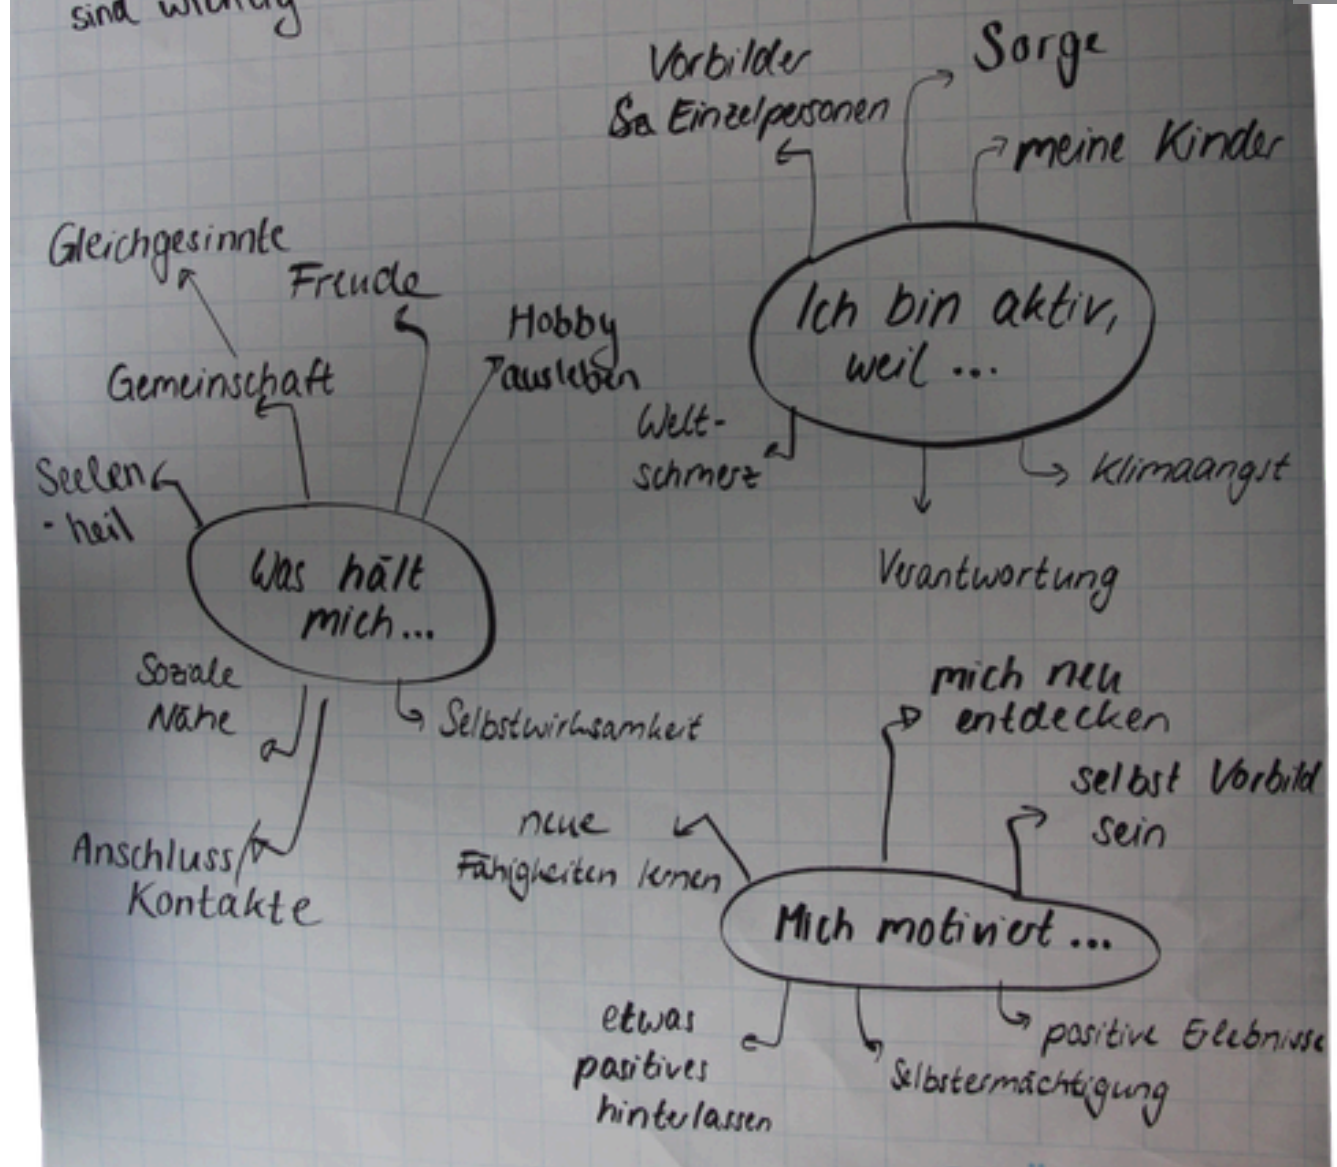 sind wichtig
Vorbilder
Einzelpersonen
Sorge
meine Kinder
Ich bin aktiv,
weil ...
Welt-
schmerz
Klimaangst
Verantwortung
Gleichgesinnte
Freude
Hobby
ausleben
Gemeinschaft
Seelen
-heil
Was hält
mich...
Soziale
Nähe
Selbstwirksamkeit
Anschluss/
Kontakte
mich neu
entdecken
selbst Vorbild
sein
neue
Fähigkeiten lernen
Mich motiviert ...
etwas
positives
hinterlassen
Selbstermächtigung
positive Erlebnisse